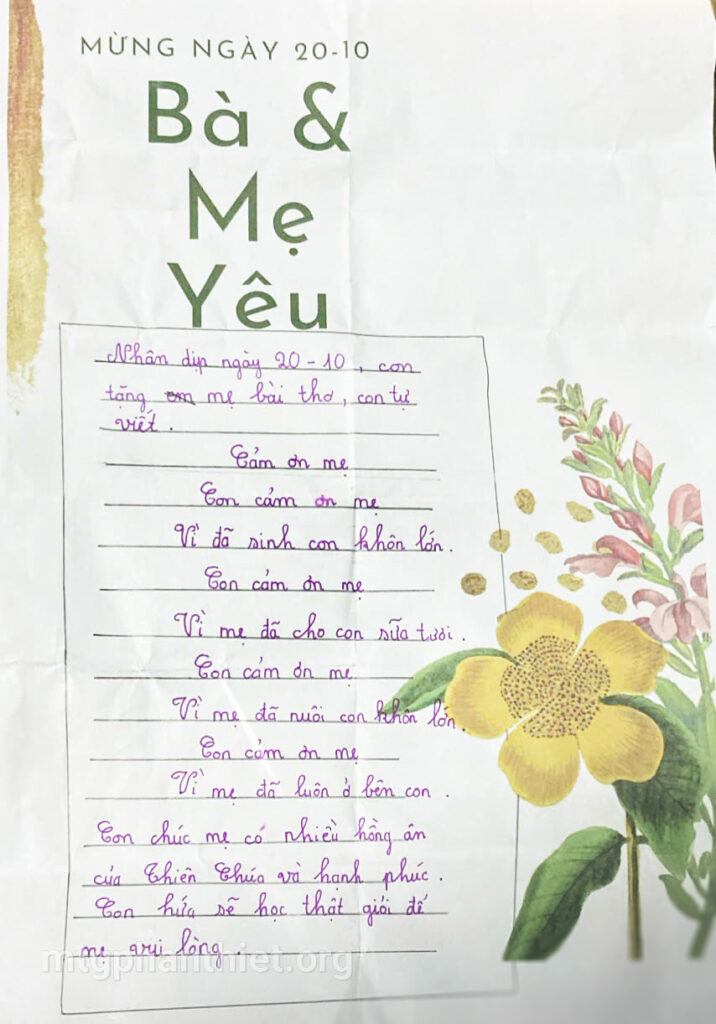 MỪNG NGÀY 20-10
Bà &
Mẹ
Yêu
Nhân dịp ngày 20-10, con
tặng em mẹ bài thơ, con tự
viết.
Cảm ơn mẹ
Con cảm ơn mẹ
Vì đã sinh con khôn lớn.
Con cảm ơn mẹ
Vì mẹ đã cho con sữa tươi.
Con cảm ơn mẹ
Vì mẹ đã nuôi con khôn lớn.
Con cảm ơn mẹ
Vì mẹ đã luôn ở bên con.
Con chúc mẹ có nhiều hồng ân
của Thiên Chúa và hạnh phúc.
Con hứa sẽ học thật giỏi để
mẹ vui lòng.
mtgphanthiet.org